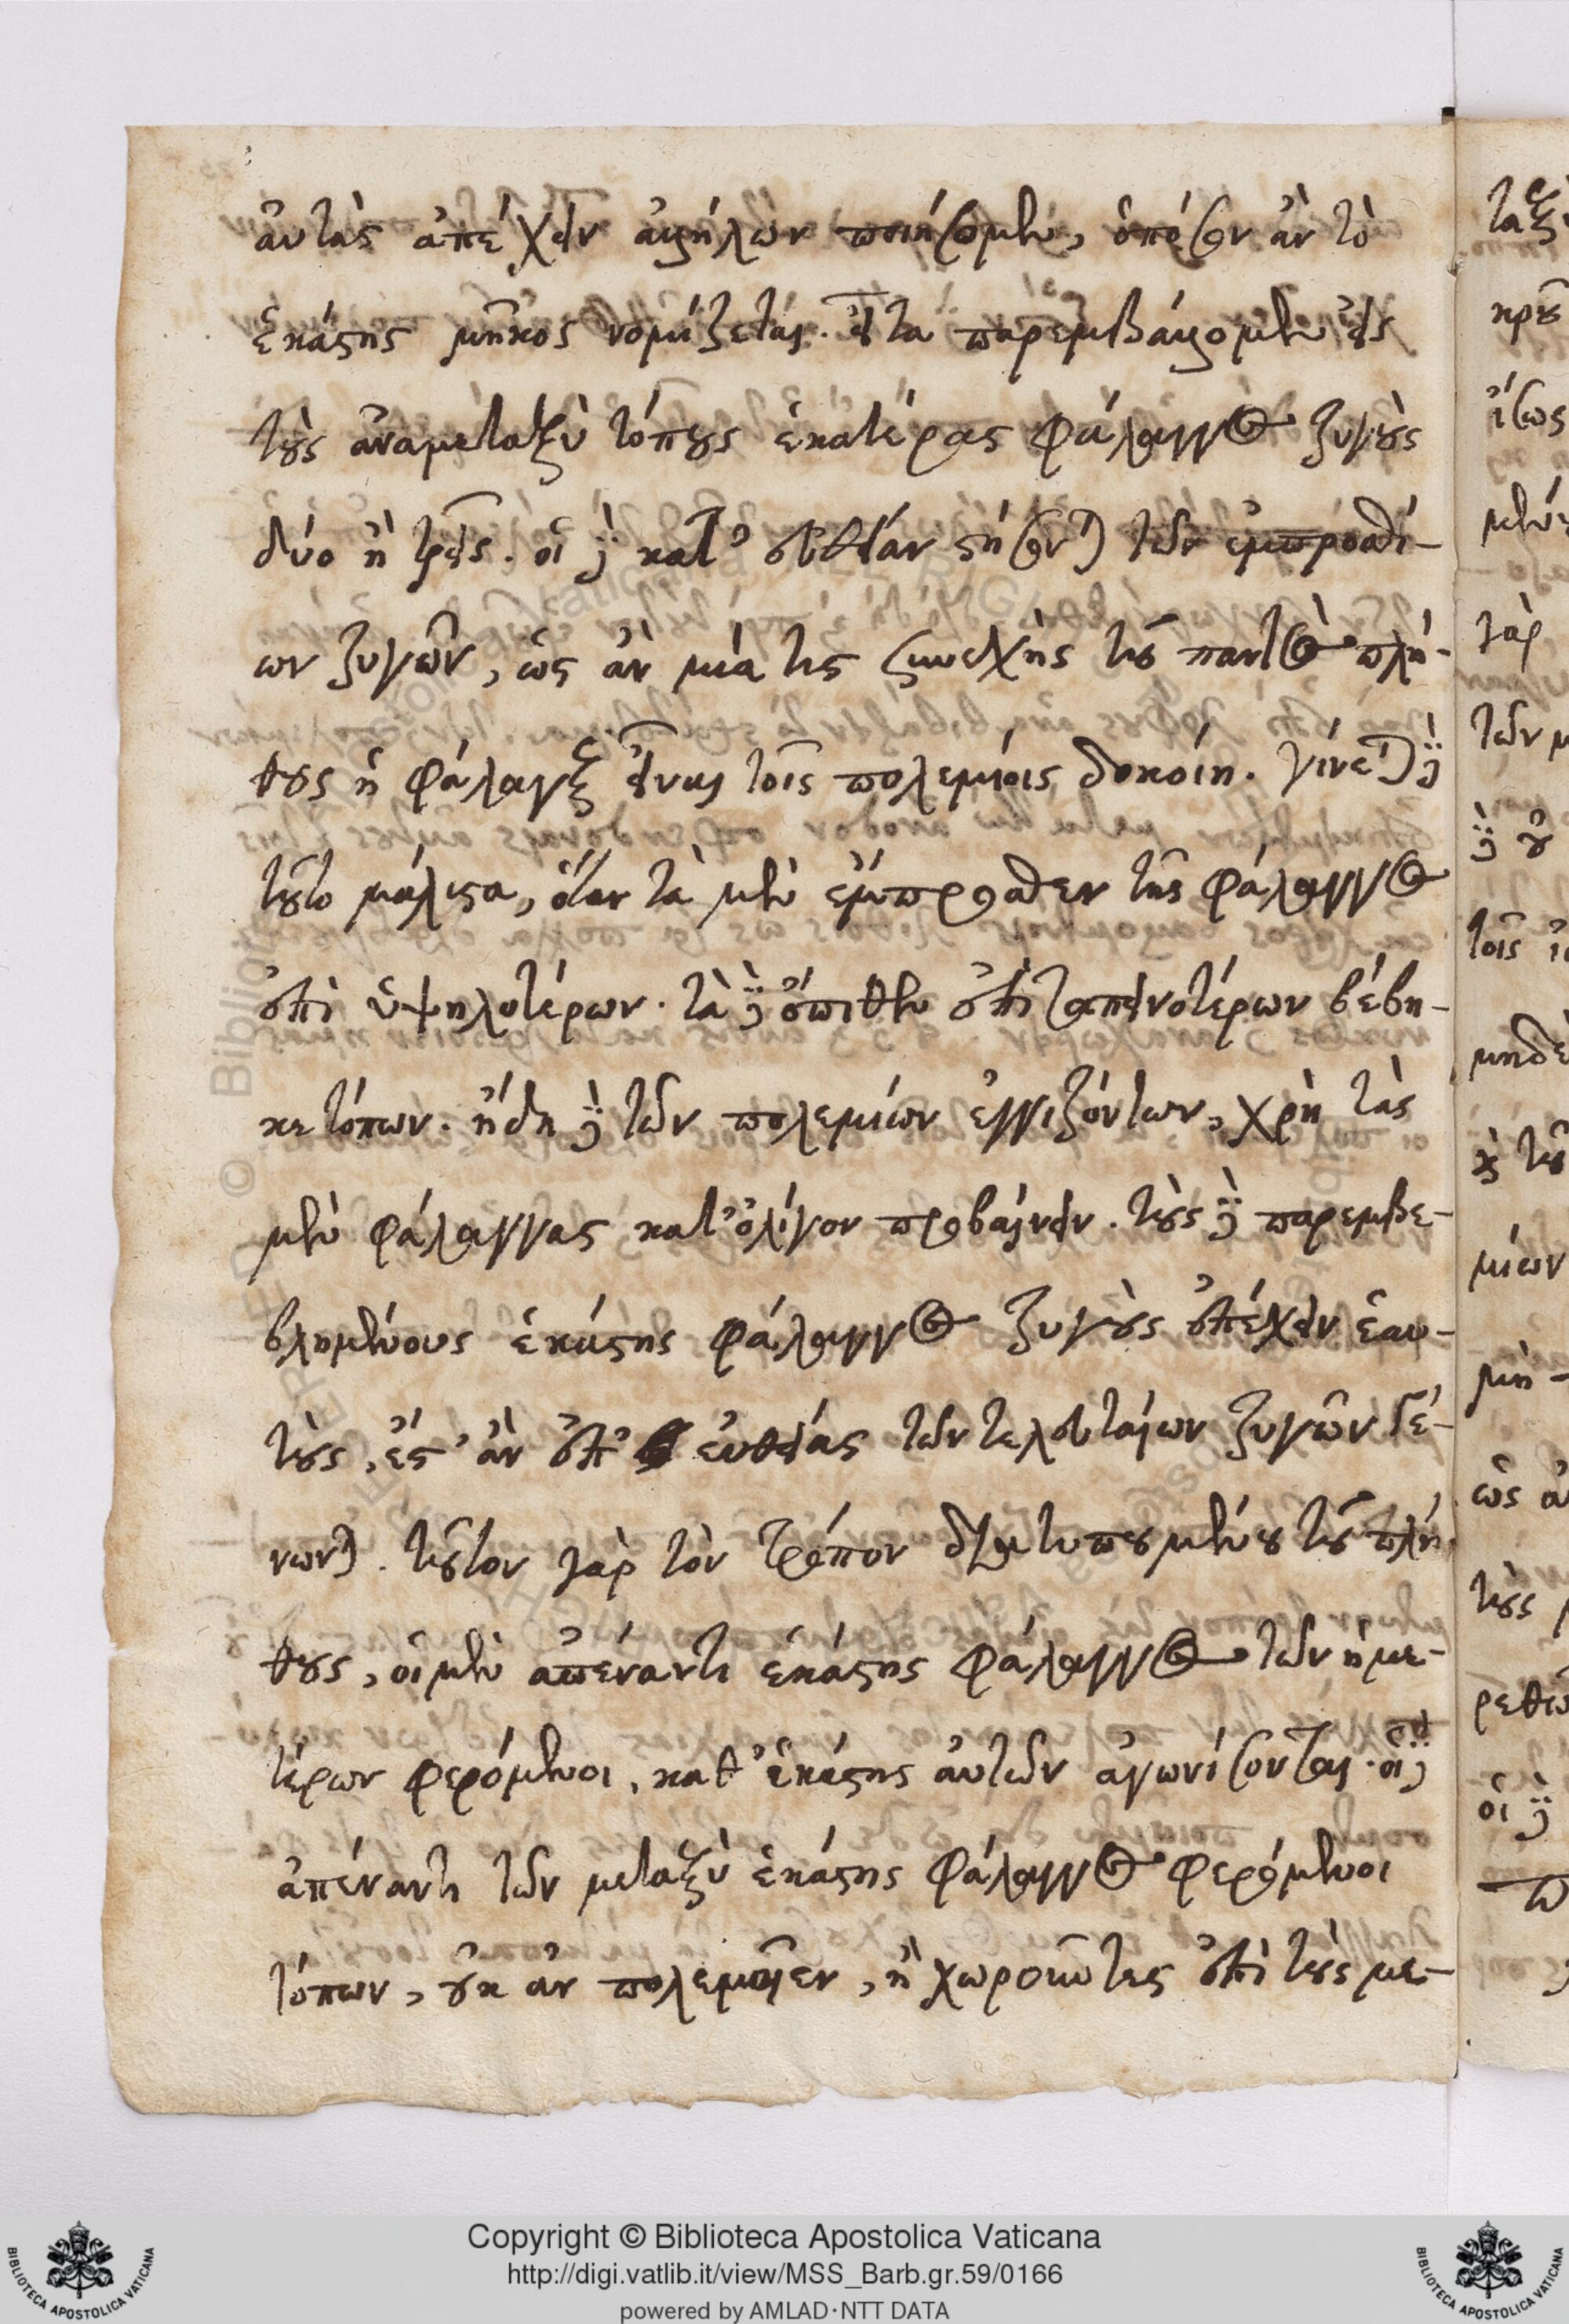 αὐτὰς ἀπέχειν ἀλλήλων ποιήσομεν, ὁπόσον ἂν τὸ
ἑκάστης μῆκος νομίζεται. εἶτα παρεμβάλλομεν εἰς
τοὺς ἀναμεταξὺ τόπους ἑκατέρας φάλαγγος ζυγοὺς
δύο ἢ τρεῖς. οἳ δὲ κατ' εὐθεῖαν στήσονται τῶν ἐμπροσθί-
ων ζυγῶν, ὡς ἂν μία τις συνεχὴς τοῦ παντὸς πλή-
θους ἡ φάλαγξ εἶναι τοῖς πολεμίοις δοκοίη. γίνεται δὲ
τοῦτο μάλιστα, ὅταν τὰ μὲν ἔμπροσθεν τῆς φάλαγγος
ἐπὶ ὑψηλοτέρων. τὰ δὲ ὄπιθεν ἐπὶ ταπεινοτέρων βέβη-
κε τόπων. ἤδη δὲ τῶν πολεμίων ἐγγιζόντων, χρὴ τὰς
μὲν φάλαγγας κατ' ὀλίγον προβαίνειν. τοὺς δὲ παρεμβε-
βλημένους ἑκάστης φάλαγγος ζυγοὺς ἐπέχειν ἑαυ-
τοὺς, ἔστ' ἂν ἐπ' εὐθείας τῶν τελευταίων ζυγῶν γέ-
νωνται. τοῦτον γὰρ τὸν τρόπον διατυπουμένου τοῦ πλή
θους, οἱ μὲν ἀπέναντι ἑκάστης φάλαγγος τῶν ἡμε-
τέρων φερόμενοι, καθ' ἑκάστης αὐτῶν ἀγωνίσονται. οἱ δὲ
ἀπέναντι τῶν μεταξὺ ἑκάστης φάλαγγος φερόμενοι
τόπων, οὐκ ἂν πολεμοῖεν, ἢ χωροῦντες ἐπὶ τοὺς με-
Copyright © Biblioteca Apostolica Vaticana
http://digi.vatlib.it/view/MSS_Barb.gr.59/0166
powered by AMLAD·NTT DATA
BIBLIOTECA APOSTOLICA VATICANA
BIBLIOTECA APOSTOLICA VATICANA